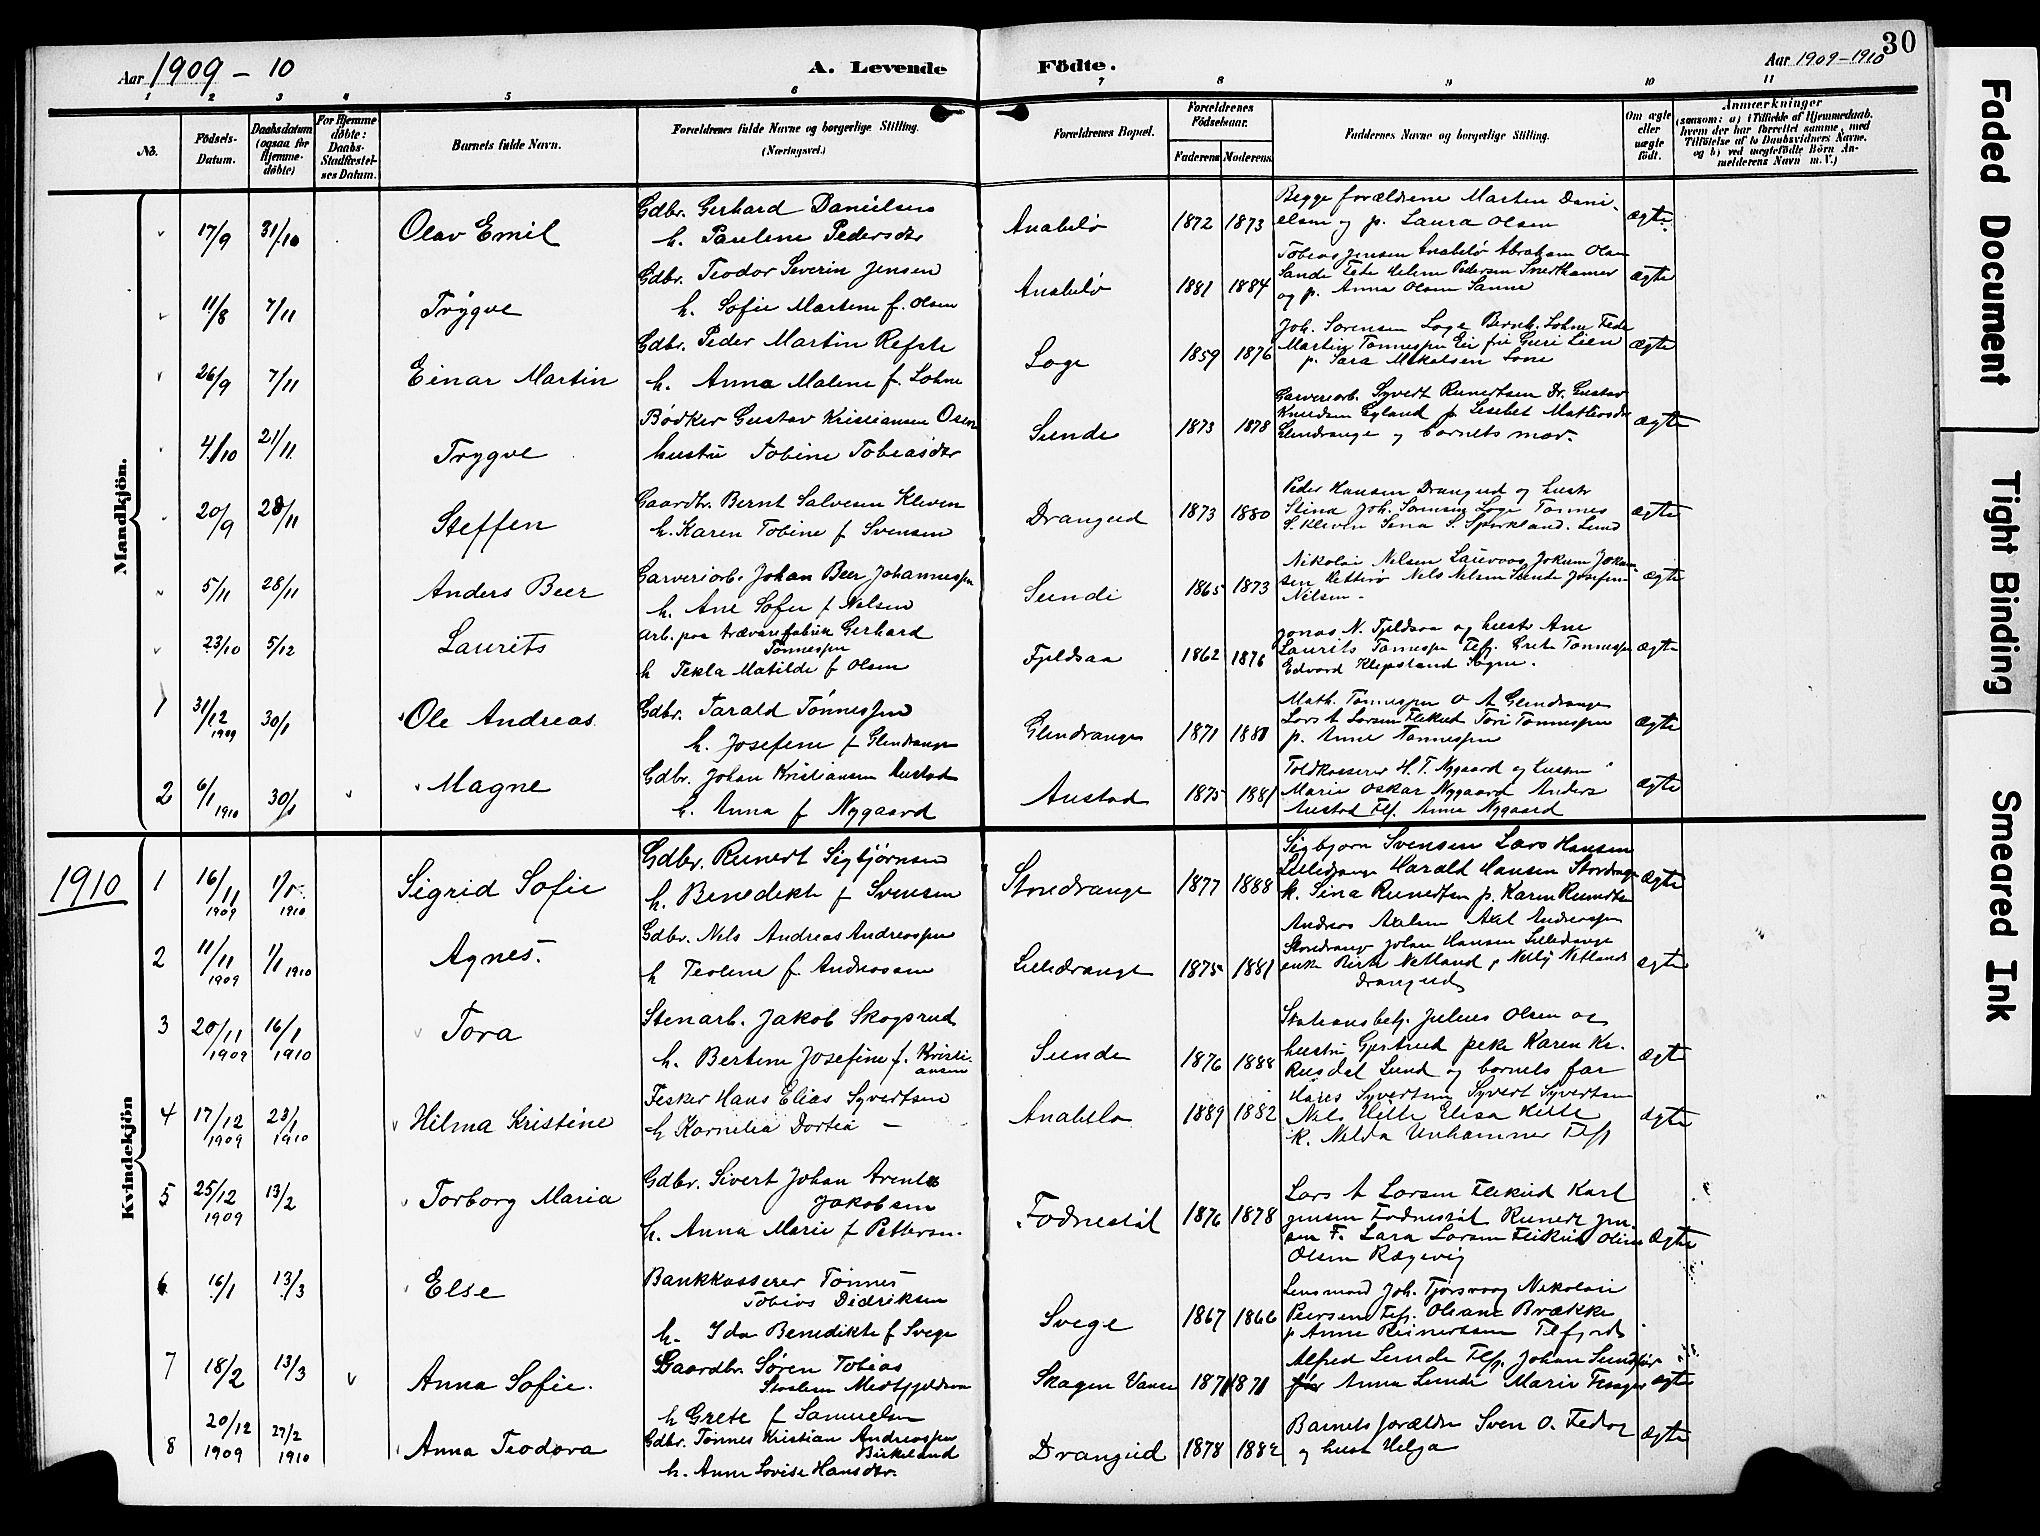 30
Aar 1909 - 10
A. Levende
Födte.
Aar 1909-1910
1 2 3 4 5 6 7 8 9 10 11
No.
Födsels-Datum.
Daabsdatum (ogsaa för Hjemmedöbte)
For Hjemmedöbte: Daabs-Stadfæstelses Datum.
Barnets fulde Navn.
Forældrenes fulde Navne og borgerlige Stilling.
(Næringsvei.)
Forældrenes Bopæl.
Forældrenes Födselsaar.
Faderens Moderens
Faddernes Navne og borgerlige Stilling.
Om ægte eller uægte födt.
Anmærkninger
(saasom: a) i Tilfælde af Hjemmedaab, hvem der har forrettet samme, med Tilföielse af to Daabsvidners Navne. og b) ved uægtefödte Börn Anmelderens Navn m. V.)
Mandkjön.
17/9 31/10 Olav Emil
Gdbr. Gerhard Danielsen
h. Pauline Pedersdtr
Anabelø 1872 1873
Begge forældrene Marten Dani-
elsen og p. Laura Olsen
ægte
11/8 7/11 Trygve
Gdbr. Teodor Severin Jensen
h. Sofie Martine f. Olsen
Anabelø 1881 1884
Tobias Jensen Anabelø Abraham Olsen
Sande Helene Pedersen
og p. Anna Olsen
ægte
26/9 7/11 Einar Martin
Gdbr. Peder Martin Refsti
h. Anna Malene f. Lohne
Loge 1859 1876
Joh. Sørensen Loge Bernh. Lohne Fede
Martin Tønnesen Lien
p. Sara Mikalsen
ægte
4/10 21/11 Trygve
Bødker Gustav Kristiansen Osen
hustru Tobine Tobiasdtr
Sunde 1873 1878
Garveriarb. Syvert Reinertsen Dr. Gustav
Knudsen Gyland p Lisebet
Glendrange og barnets mor.
ægte
20/9 28/11 Steffen
Gaardbr. Bernt Salvesen Kleven
h. Karen Tobine f Svensen
Drangeid 1873 1880
Peder Hansen Drangeid og hustr
Stina Joh. Samsing Loge Tønnes
S. Kleven Sina S. Lund
ægte
5/11 28/11 Anders Beer
Garveriarb. Johan Beer Johannesen
h. Ane Sofie f Nelsen
Sunde 1865 1873
Nikolai Nelsen Lauvaas Jokum
sen Hitterø Nels Nelsen Sunde Josefine
Nelsen.
ægte
23/10 5/12 Laurits
Arb. paa trævarefabrik Gerhard
Tønnesen
h Tekla Matilde f Olsen
Fjeldsaa 1862 1876
Jonas N. Fjeldsaa og hustr Ane
Laurits Tønnesen Flf. Grete Tønnesen
Edvard Klepsland Sogne.
ægte
1 31/12 1909 30/1 Ole Andreas
Gdbr. Tarald Tønnessen
h. Josefine f Glendrange
Glendrange 1871 1881
Math. Tønnesen O A Glendrange
Lars A Larsen Flikeid Tønnesen
p. Anne Tønnesen
ægte
2 6/1 1910 30/1 Magne
Gdbr. Johan Kristiansen Austad
h. Anna f Nygaard
Austad 1875 1881
Toldkasserer H. T. Nygaard og hustru
Marie Oskar Nygaard Anders
Austad Flf. Anna Nygaard
ægte
1910
Kvindekjön
1 16/11 1909 1/1 1910 Sigrid Sofie
Gdbr. Reinert Sigbjørnsen
h. Benedikte f Svensen
Storedrange 1877 1888
Sigbjørn Svensen Lars Hansen
Lilledrange Harald Hansen Stordrange
k. Sina Reinertsen p. Karen Reinertsen
ægte
2 11/11 1909 1/1 1910 Agnes.
Gdbr. Nils Andreas Andreassen
h Teoline f. Andreassen
Lilledrange 1875 1881
Andreas Axelsen Axel Andreassen
Storedrange Johan Hansen Lilledrange
enke Netland p Nelly Netland
Drangeid
ægte
3 20/11 1909 16/1 1910 Tora
Stenarb. Jakob Skogsrud
h. Bertine Josefine f. Kristi-
ansen
Sunde 1876 1888
Stationsbetj. Julius Olsen og
hustru Gjertrud peke Karen Kr.
Rusdal Lund og barnets far
ægte
4 17/12 1909 23/1 1910 Hilma Kristine
Fisker Hans Elias Syvertsen
h Kornelia Dortea —
Anabelø 1889 1882
Hans Syvertsen Syvert Syvertsen
Nils Hille Elisa Hille
k. Nilda Unhammer Flf
ægte
5 25/12 1909 13/2 Torborg Maria
Gdbr. Sivert Johan Arents
Jakobsen
h. Anna Marie f Pettersen.
Fodnestøl 1876 1878
Lars A Larsen Flikeid Karl
Jensen Fodnestøl Reinert Jen-
sen F. Lara Larsen Flikeid Oline
Olsen Rægevig
ægte
6 16/1 13/3 Else
Bankkasserer Tønnes
Tobias Didriksen
h. Ida Benedikte f Svege
Svege 1867 1866
Lensmand Joh. Tjørsvaag Nikolai
Peersen Flf. Oliane Brække
p Anne Reinertsen Flfjord
7 18/2 13/3 Anna Sofie.
Gaardbr. Søren Tobias
Staalesen
h Grete f Samuelsen
Skagen Vanse 1871 1871
Alfred Sunde Flf. Johan
Anna Sunde Marie
ægte
8 20/12 1909 27/2 1910 Anna Teodora
Gdbr. Tønnes Kristian Andreassen
Birkeland
h. Anne Lovise Hansdtr.
Drangeid 1878 1882
Barnets forældre Sven O. Fedog
og hust Helga
ægte
Faded Document
Tight Binding
Smeared Ink